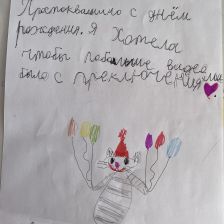 Простоквашино с днём
рождения. Я хотела
чтобы побольше видео
было с преключениями